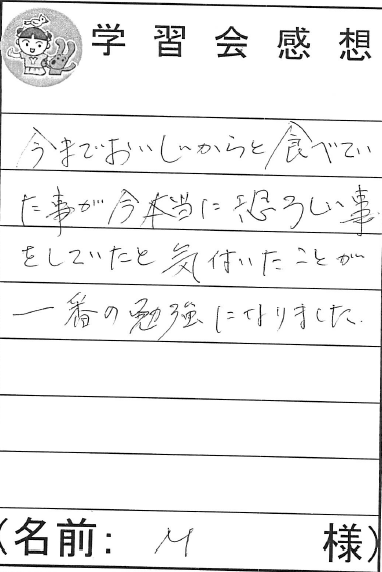 学習会感想
今までおいしいからと食べてい
た事が今本当に恐ろしい事
をしていたと気付いたことが
一番の勉強になりました.
(名前: M 様)